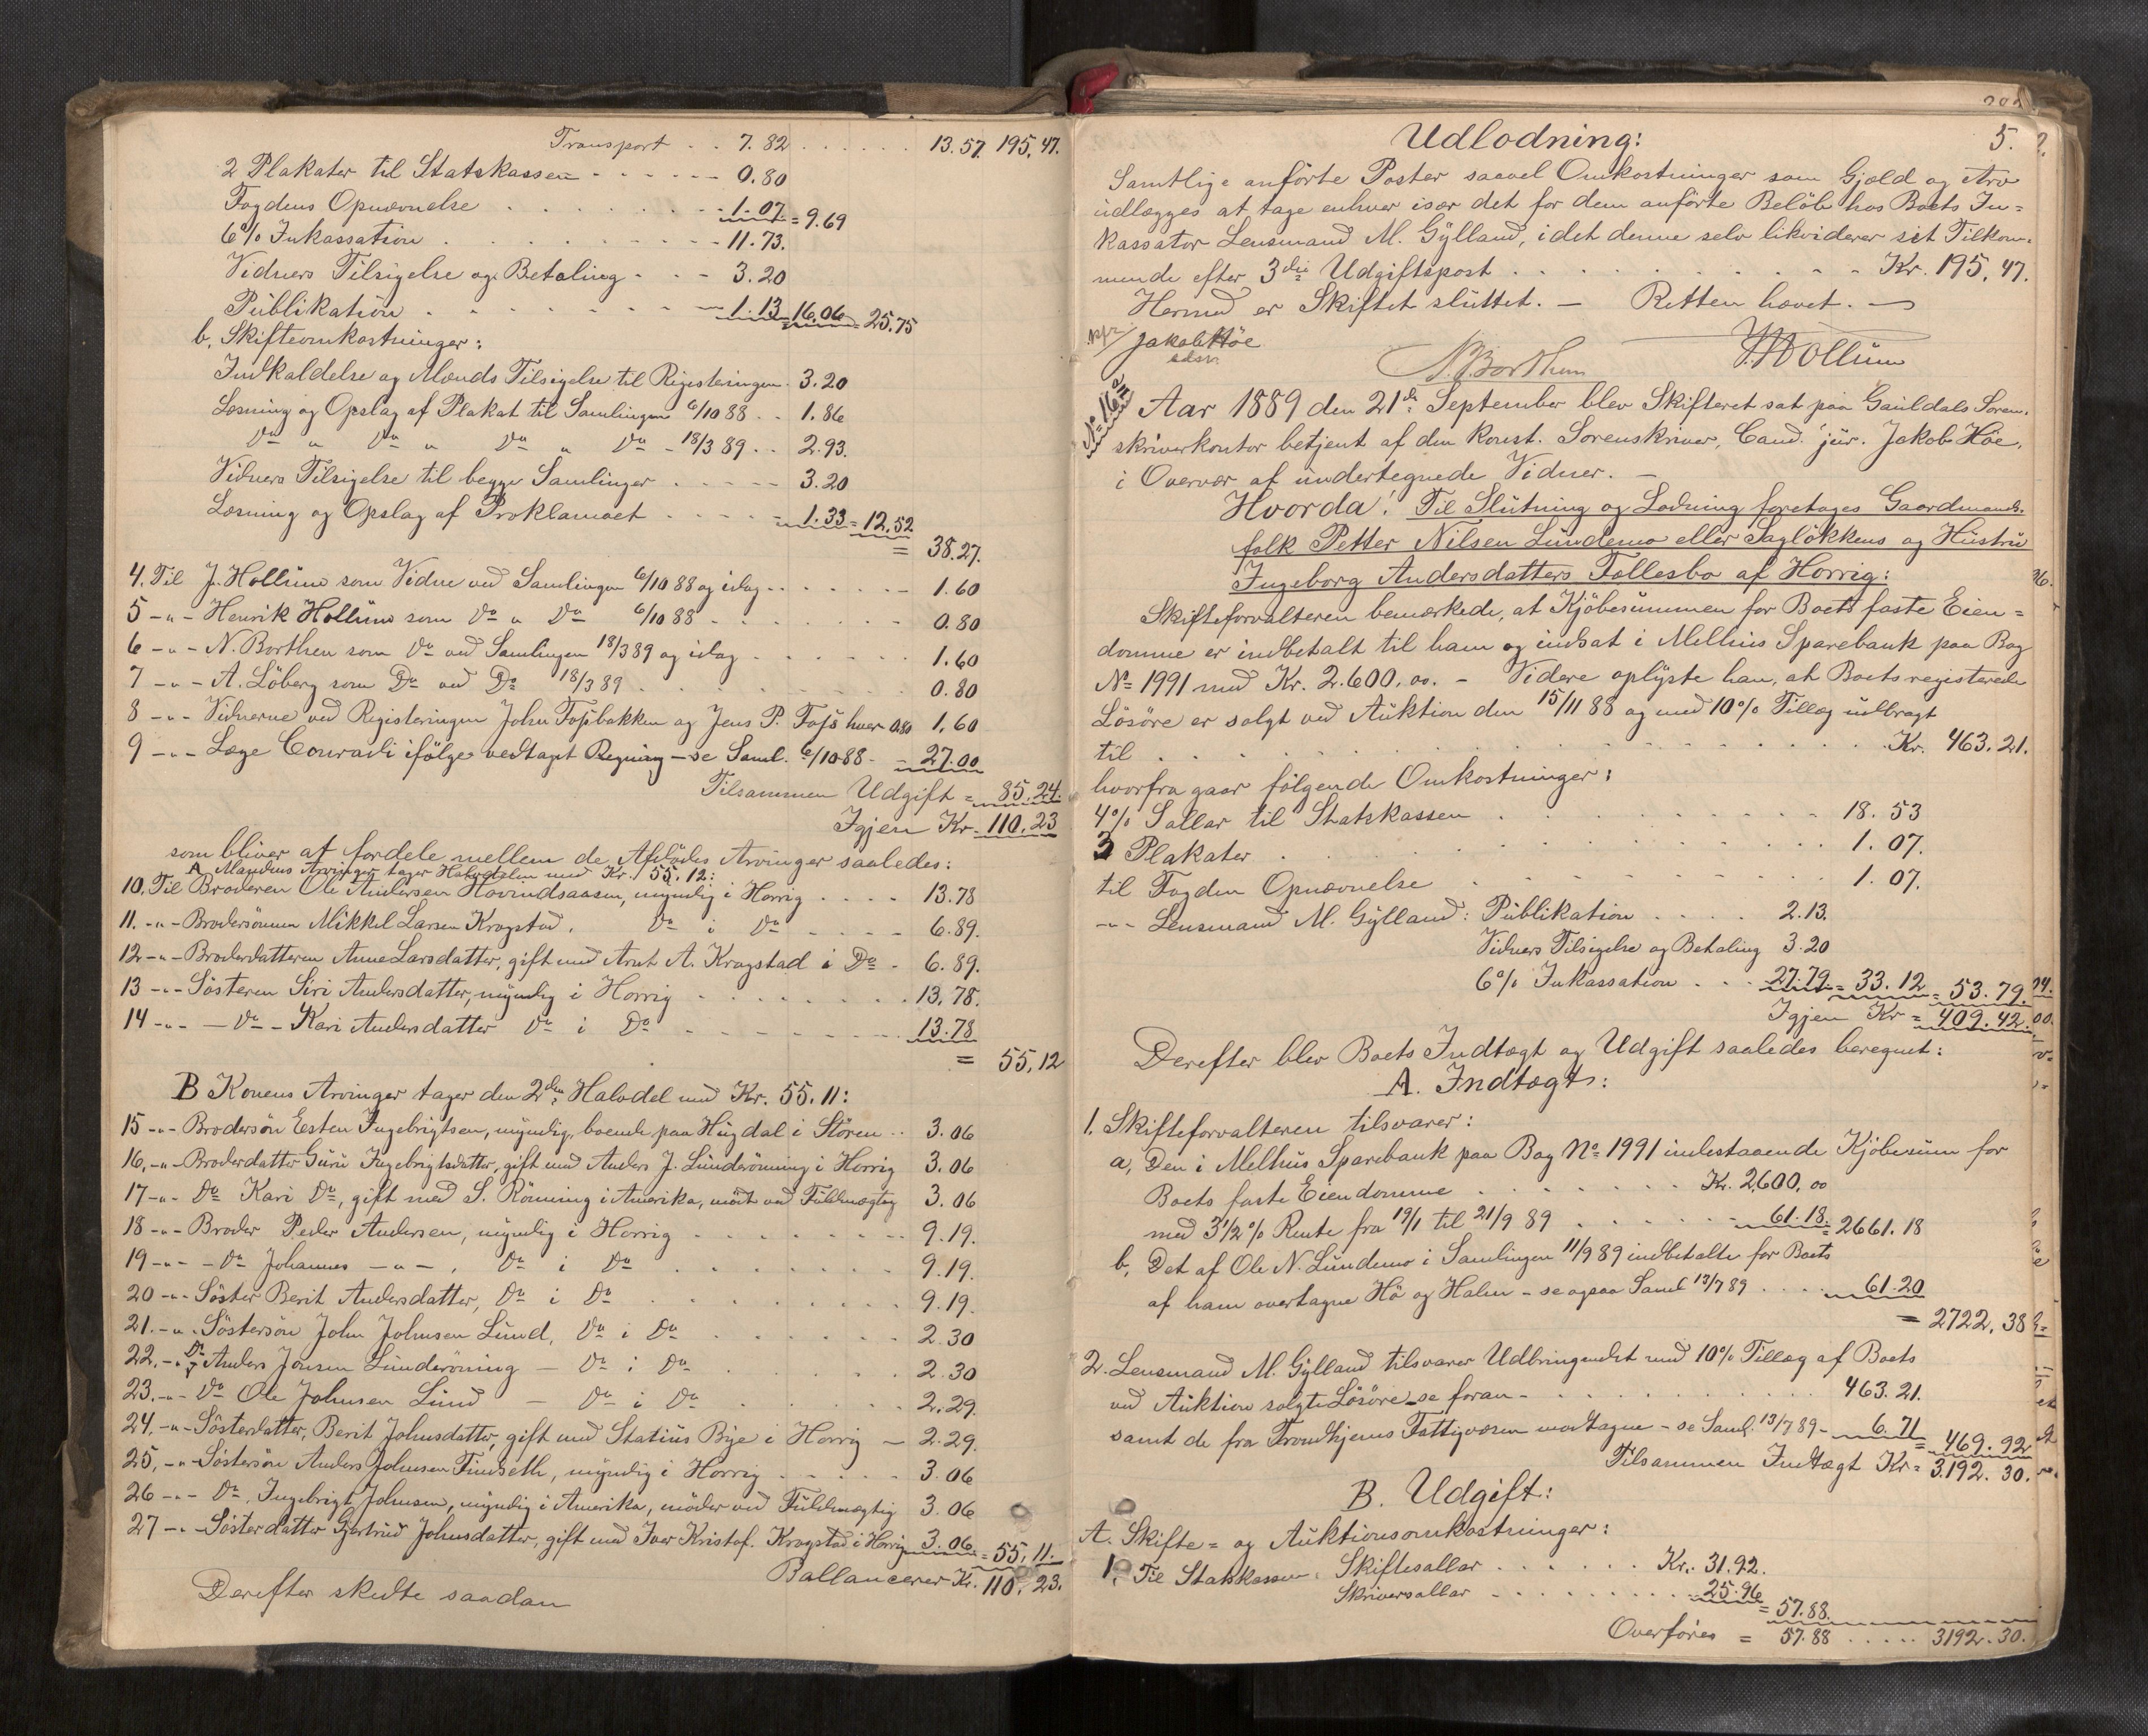 Transport . . 7.82 . . . . . . 13.57. 195,47.
2 Plakater til Statskassen - - - - - - 0.80
Fogdens Opnævnelse . . . . . . . 1.07 = 9.69
6% Inkassation . . . . . . . . 11.73.
Vidners Tilsigelse og Betaling - - - 3.20
Publikation . . . . . . . . 1.13 = 16.06 = 25.75
b, Skifteomkostninger:
Indkaldelse og Mænds Tilsigelse til Registeringen. 3.20
Læsning og Opslag af Plakat til Samlingen 6/10 88 . . 1.86
Do " Do " Do " Do - 18/3 89 . . 2.93.
Vidners Tilsigelse til begge Samlinger . . - - - 3.20
Læsning og Opslag af Proklamaet . . . . - 1.33 = 12.52
= 38.27.
4. Til J. Hollum som Vidne ved Samlingen 6/10 88 og idag - . . . . . - 1.60
5 -"- Henrik Hollum som Do " Do 6/10 88 - . . . . . 0.80
6 -"- N. Borthen som Do ved Samlingen 18/3 89 og idag . . . . . 1.60
7 -"- A. Löberg som Do ved Do 18/3 89 . . . . . . 0.80
8 -"- Vidnerne ved Registeringen John Fosbakken og Jens P. Foss hver 0.80 1.60
9 -"- Læge Conradi ifölge vedtaget Regning - se Saml. 6/10-88 - 27.00
Tilsammen Udgift = 85.24.
Igjen Kr. 110.23
som bliver at fordele mellem de Afdödes Arvinger saaledes:
A Mandens Arvinger tager Halvdelen med Kr. 55.12:
10. Til Broderen Ole Andersen Hovindsaasen, myndig i Horrig . . . . 13.78
11. -"- Brodersönnen Mikkel Larsen Kragstad, Do i Do - - - - 6.89.
12 -"- Broderdatteren Anne Larsdatter, gift med Arnt A. Kragstad i Do - 6.89.
13 -"- Sösteren Siri Andersdatter, myndig i Horrig . . . . . . 13.78.
14 -"- - Do - Kari Andersdatter Do i Do - - - - - - 13.78
= 55,12
B Konens Arvinger tager den 2den Halvdel med Kr. 55.11:
15 -"- Brodersön Esten Ingebrigtsen, myndig, boende paa Hugdal i Stören . . 3.06
16, -"- Broderdatter Guru Ingebrigtsdatter, gift med Anders J. Lunderönning i Horrig 3.06
17 -"- Do Kari Do, gift med S. Rönning i Amerika, mödt ved Fuldmægtig 3.06
18 -"- Broder Peder Andersen, myndig i Horrig . . . . . . . 9.19.
19 -"- - Do Johannes -"- , Do i Do . . . . . . 9.19.
20 -"- Söster Berit Andersdatter, Do i Do . . . . . . 9.19.
21. -"- Söstersön John Johnsen Lund, Do i Do . . . . . 2.30
22. -"- Do Anders Jonsen Lunderöning - Do i Do . . . . . 2.30
23. -"- Do Ole Johnsen Lund - Do i Do . . . . . 2.29.
24, -"- Sösterdatter, Berit Johnsdatter, gift med Statius Bye i Horrig - 2.29.
25, -"- Söstersön Anders Johnsen Findseth, myndig i Horrig - - - - 3.06
26 -"- Do, Ingebrigt Johnsen, myndig i Amerika, möder ved Fuldmægtig 3.06
27 -"- Sösterdatter Gjertrud Johnsdatter, gift med Iver Kristof. Kragstad i Horrig 3.06. = 55,11.
Ballancerer Kr. 110,23.
Derefter skedte saadan
Udlodning: 5.
Samtlige anförte Poster saavel Omkostninger som Gjæld og Arv
udlægges at tage enhver især det for dem anförte Belöb hos Boets In=
kassator Lensmand M. Gylland, idet denne selv likviderer sit Tilkom-
mende efter 3die Udgiftspost . . . . . . . . . . Kr. 195,47.
Hermed er Skiftet sluttet. - Retten hævet. -
Jakob Höe
N. Borthen J. Hollum
Aar 1889 den 21de September blev Skifteret sat paa Gauldals Soren-
skriverkontor betjent af den konst. Sorenskriver, Cand. jur. Jakob Höe,
i Overvær af undertegnede Vidner. -
Hvorda! Til Slutning og Lodning foretages Gaardmands-
folk Petter Nilsen Lundemo eller Saglökkens og Hustru
Ingeborg Andersdatters Fællesbo af Horrig:
Skifteforvalteren bemærkede, at Kjöbesummen for Boets faste Eien=
domme er indbetalt til ham og indsat i Melhus Sparebank paa Bog
No 1991 med Kr. 2.600,00. - Videre oplyste han, at Boets registerede
Lösöre er solgt ved Auktion den 15/11 88 og med 10% Tillæg udbragt
til . . . . . . . . . . . . . . . Kr. 463.21.
hvorfra gaar fölgende Omkostninger:
4% Sallar til Statskassen . . . . . . . . . 18.53
3 Plakater . . . . . . . . . . . . 1.07.
til Fogden Opnævnelse . . . . . . . . . 1.07.
-"- Lensmand M. Gylland: Publikation . . . . 2.13.
Vidners Tilsigelse og Betaling 3.20
6% Inkassation . . - 27.79 = 33.12 = 53.79.
Igjen Kr = 409.42.
Derefter blev Boets Indtægt og Udgift saaledes beregnet:
A. Indtægt:
1. Skifteforvalteren tilsvarer:
a, Den i Melhus Sparebank paa Bog No 1991 indestaaende Kjöbesum for
Boets faste Eiendomme . . . . . . . Kr. 2,600,00
med 3 1/2 % Rente fra 19/1 til 21/9 89 . . . . . . 61.18 = 2661.18
b, Det af Ole N. Lundemo i Samlingen 11/9 89 indbetalte for Boets
af ham overtagne Hö og Halm - se ogsaa Saml 13/7 89 . . . . 61.20
= 2722,38
2. Lensmand M. Gylland tilsvarer Udbringendet med 10% Tillæg af Boets
ved Auktion solgte Lösöre - se foran - . . . . . . . . 463.21.
samt de fra Trondhjems Fattigvæsen modtagne - se Saml. 13/7 89 - 6.71 = 469.92
Tilsammen Indtægt Kr = 3.192.30.
B. Udgift:
A. Skifte= og Auktionsomkostninger:
1, Til Statskassen, Skiftesallar . . . . . . Kr. 31.92.
Skriversallar - . . . . . . . 25.96 = 57.88.
Overföres = 57.88 . . . . . 3192.30.